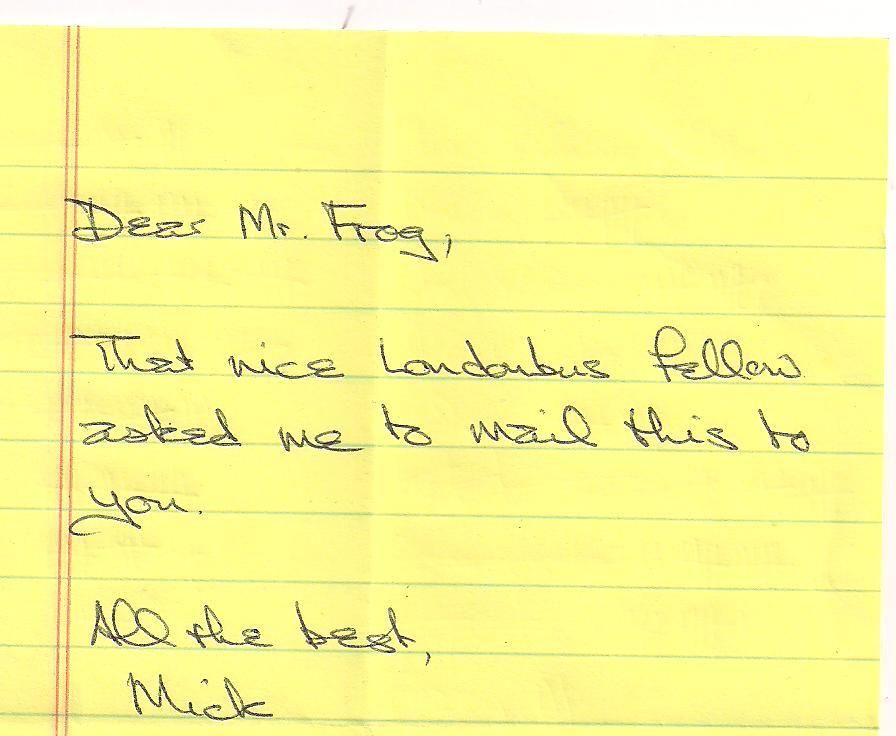 Dear Mr. Frog,
That nice Londonbus fellow
asked me to mail this to
you.
All the best,
Mick